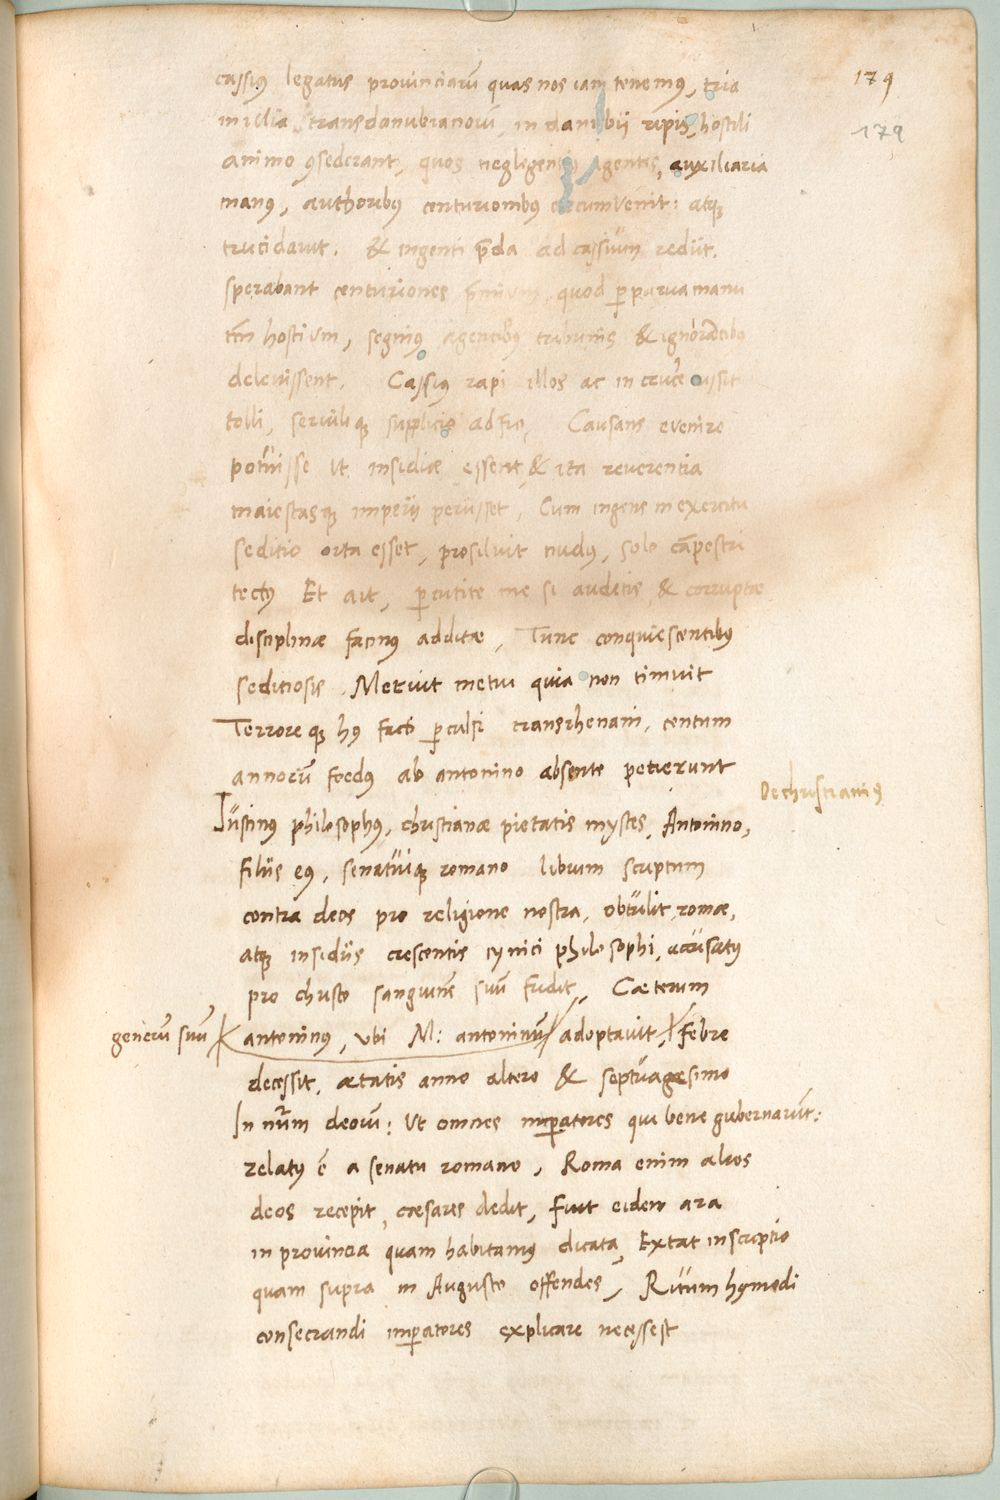 179
179
cassiꝰ legatus prouinciarū quas nos iam tenemꝰ, tria
millia transdanubianorū, in danubii ripis, hostili
animo ꝯsederant, quos neglegentiꝰ agentes, auxiliaria
manꝰ, authoribꝰ centurionibꝰ circumvenit: atqꝫ
trucidauit. & ingenti p̄da ad cassium rediit.
sperabant centuriones p̄mium, quod ꝑ parua manu
tm̄ hostium, segniꝰ agentibꝰ tribunis & ignorātibꝰ
deleuissent. Cassiꝰ rapi illos ac in crucē iussit
tolli, seruiliqꝫ supplicio adfici, Causans evenire
potuisse Ut insidiæ essent, & ita reverentia
maiestasqꝫ imperii periisset, Cum ingens in exercitu
seditio orta esset, prosiluit nudꝰ, solo cāpestri
tectꝰ Et ait, ꝑcutite me si audetis, & corruptæ
disciplinæ facinꝰ additæ, Tunc conquiescentibꝰ
seditiosis. Meruit metui quia non timuit
Terroreqꝫ hꝰ facti ꝑculsi transrhenani, centum
annorū foedꝰ ab antonino absente petierunt
De christianis
Iustinꝰ philosophꝰ, christianæ pietatis mystes, Antonino,
filiis eꝰ, senatuiqꝫ romano librum scriptum
contra deos pro religione nostra, obtulit romæ,
atqꝫ insidiis crescentis cynici philosophi, accusatꝰ
pro christo sanguinē suū fudit, Cæterum
generū suū antoninꝰ, ubi M: antoninū adoptauit, febre
decessit, ætatis anno altero & septuagesimo
In nūm deorū: Ut omnes imꝑatores qui bene gubernarūt:
relatꝰ ē a senatu romano, Roma enim alios
deos recepit, cæsares dedit, Fuit eidem ara
in prouincia quam habitamꝰ dicata, Extat inscriptio
quam supra in Augusto offendes, Ritum hꝰmodi
consecrandi imꝑatores explicare necesse st